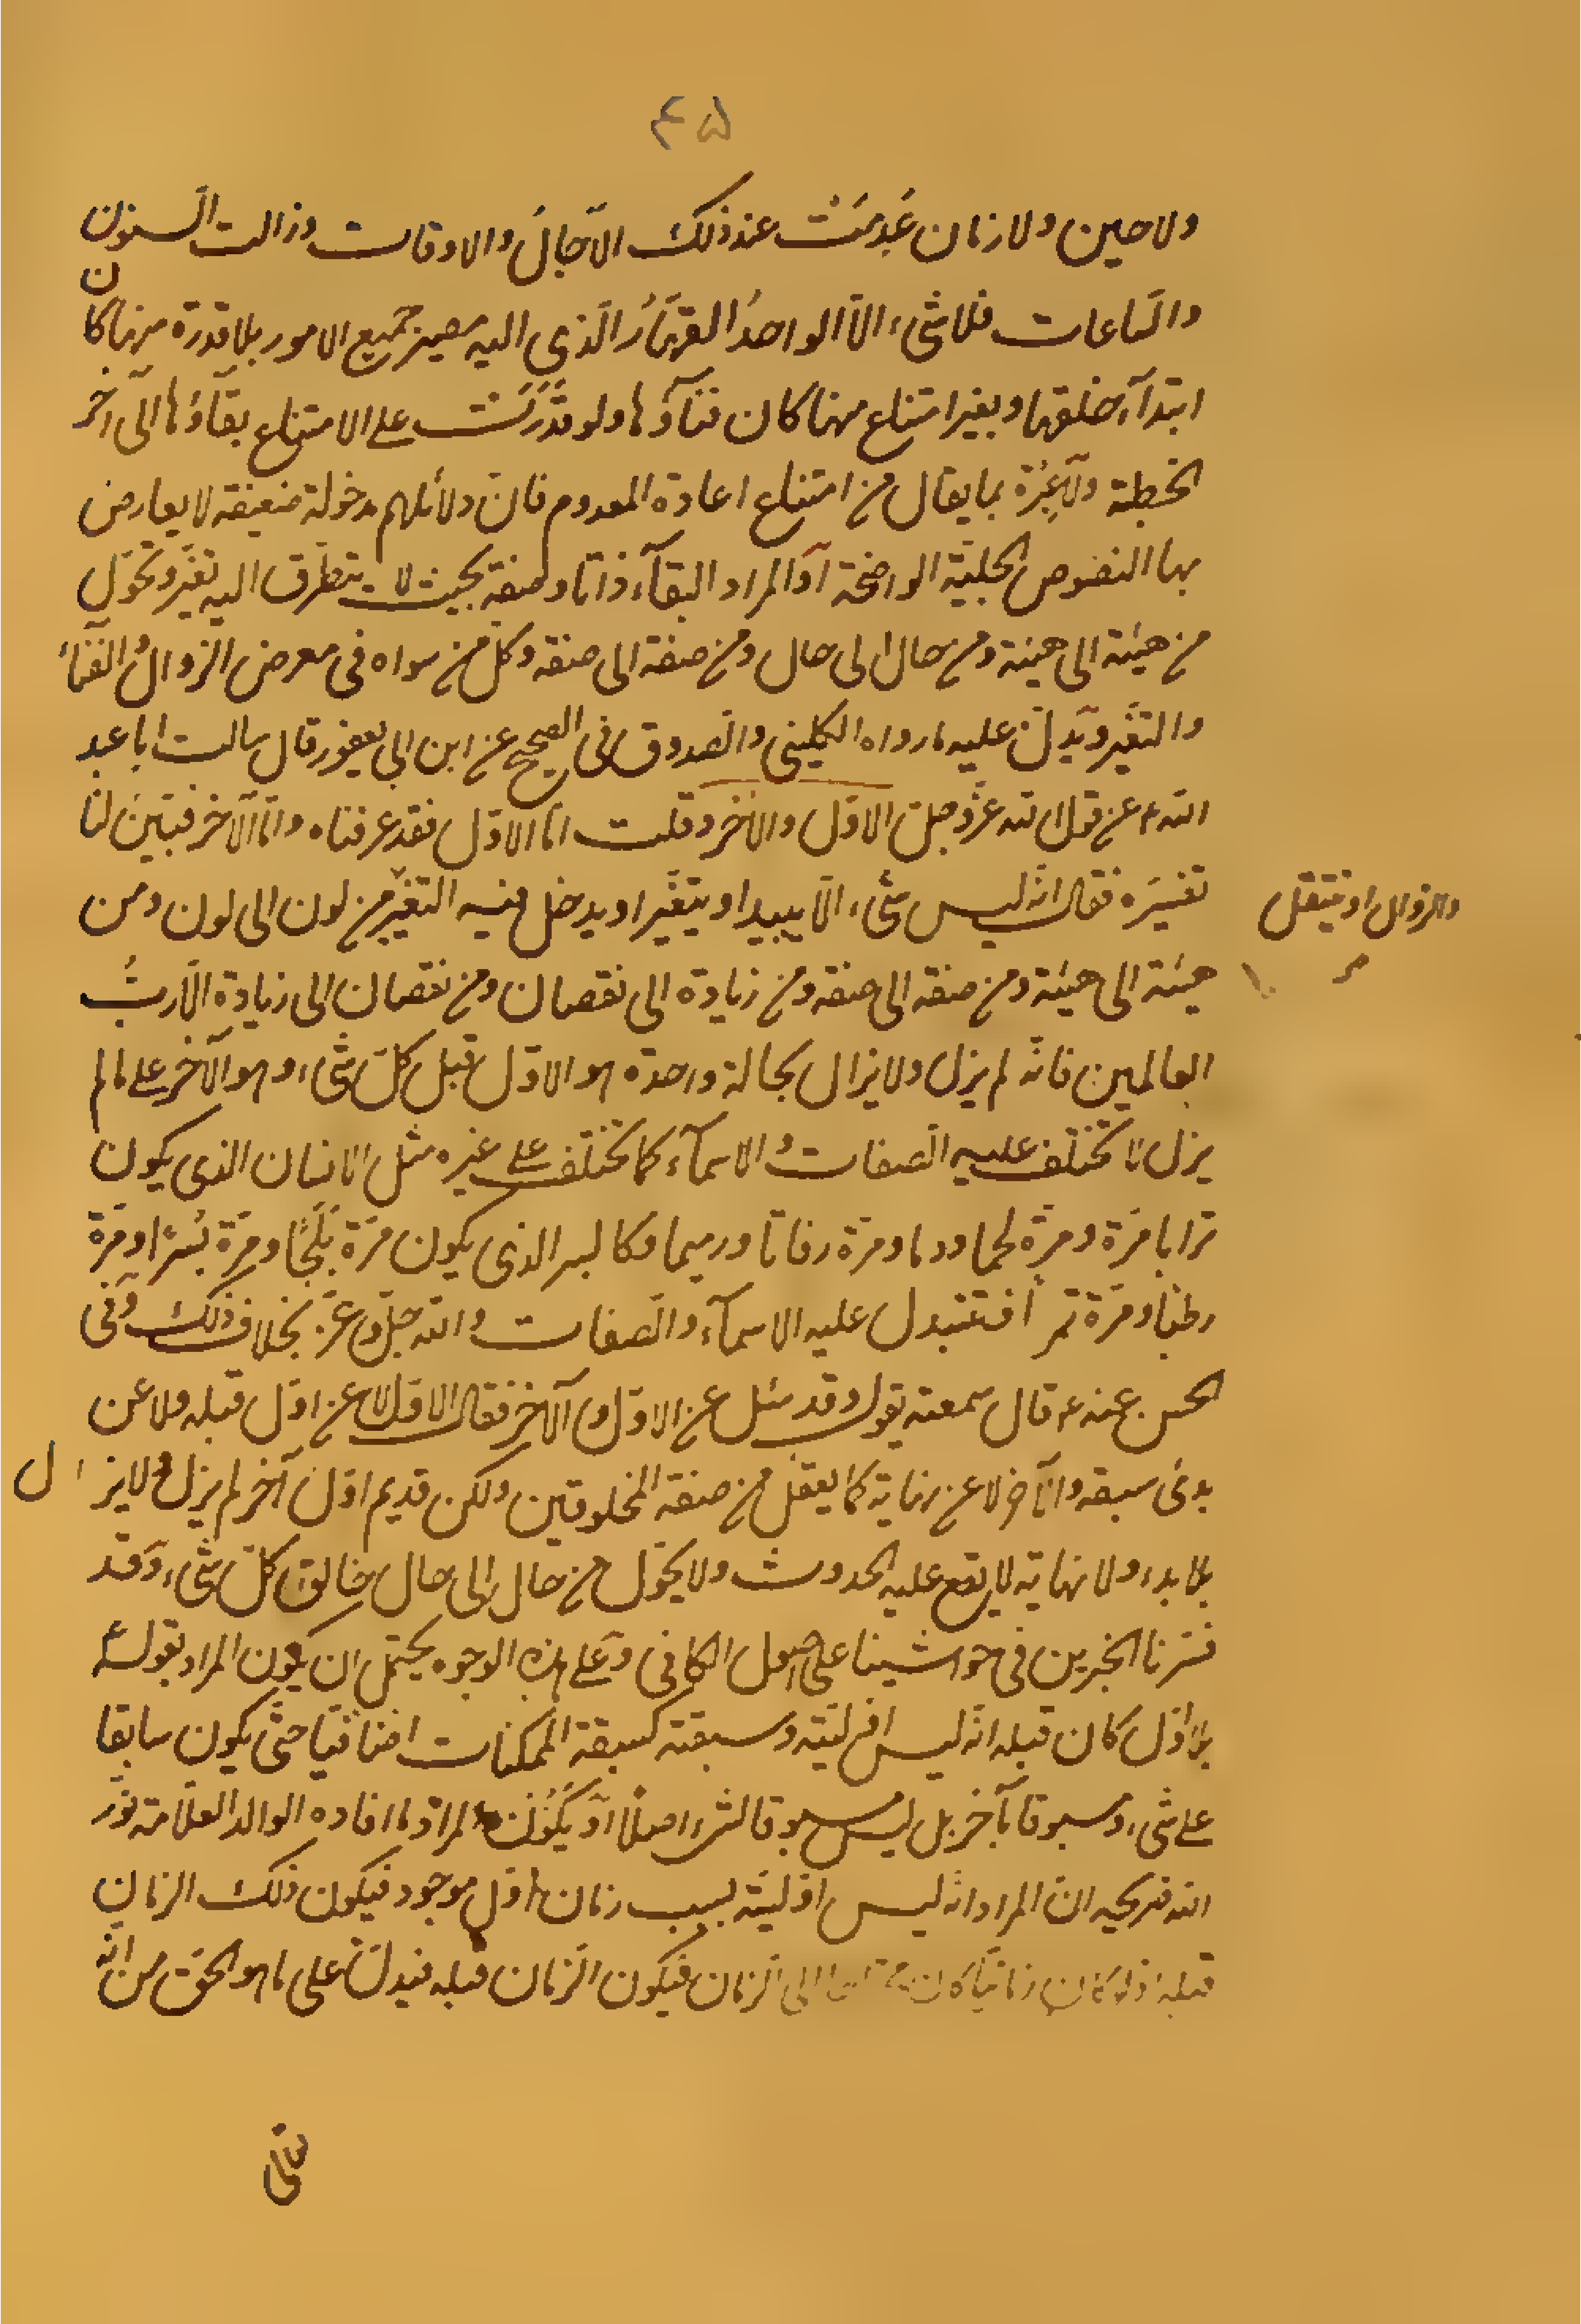 ۴۵
ولا حين ولا زمان عُدِمَتْ عند ذلك الآجالُ والاوقات وزالت السنون
والسّاعات فلا شیء الّا الواحدُ القهّارُ الّذی الیه مصیر جمیع الامور بلا قدرة منها كان
ابتدآء خلقها وبغیر امتناع منها كان فنآؤها ولو قَدَرَتْ علی الامتناع بقآؤها الی آخر
الخطبة ولا عِبْرَة بما یقال من امتناع اعادة المعدوم فانّ دلائلهم مدخولة ضعیفة لا یعارض
بها النصوص الجلیّة الواضحة او المراد البقآء ذاتا وصفة بحیث لا یتطرّق الیه تغیّر وتحوّل
من هیئة الی هیئة ومن حال الی حال ومن صفة الی صفة وكلّ من سواه فی معرض الزوال والفنآء
والتغیّر ویدلّ علیه ما رواه الكلینی والصّدوق فی الصحیح عن ابن ابی یعفور قال سالت ابا عبد
الله ع عن قول الله عزّ وجلّ الاوّل والآخر وقلت امّا الاوّل فقد عرفناه وامّا الآخر فبیّن لنا
تفسیرَه فقال انّه لیس شیء الّا یبید او یتغیّر او یدخل فیه التغیّر من لون الی لون ومن
والزوال او ینتقل
هیئة الی هیئة ومن صفة الی صفة ومن زیادة الی نقصان ومن نقصان الی زیادة الّا ربُّ
العالمین فانّه لم یزل ولا یزال بحالة واحدة هو الاوّل قبل كلّ شیء وهو الآخر علی ما لم
یزل لا تختلف علیه الصّفات والاسمآء كما تختلف علی غیره مثل الانسان الذی یكون
ترابا مرّة ومرّة لحما ودما ومرّة رفاتا ورمیما وكالبسر الذی یكون مرّة بَلَحًا ومرّة بُسْرًا ومرّة
رطبا ومرّة تمرا فتتبدل علیه الاسمآء والصّفات والله جلّ وعزّ بخلاف ذلك وفی
الحسن عنه ع قال سمعته یقول وقد سئل عن الاوّل والآخر فقال الاوّل لا عن اوّل قبله ولا عن
بدئ سبقه والآخر لا عن نهایة كما یعقل من صفة المخلوقین ولكن قدیم اوّل آخر لم یزل ولا یزال
بلا بدء ولا نهایة لا یقع علیه الحدوث ولا یحوّل من حال الی حال خالق كلّ شیء وقد
فسّرنا الخبرین فی حواشینا علی اصول الكافی وعلی هذه الوجوه یحتمل ان یكون المراد بقوله ع
بلا اوّل كان قبله انّه لیس اوّلیّته وسبقته كسبقة الممكنات اضافیّا حتّی یكون سابقا
علی شیء ومسبوقا بآخر بل لیس مسبوقا لشیء اصلًا او یكُونُ المراد ما افاده الوالد العلّامة نوّر
الله ضریحه انّ المراد انّه لیس اوّلیّته بسبب زمان اوّل موجود فیكون ذلك الزمان
قبله اذ لو كان زمانیّا كان الی الزمان فیكون الزمان قبله فیدلّ علی ما هو الحقّ من انّه